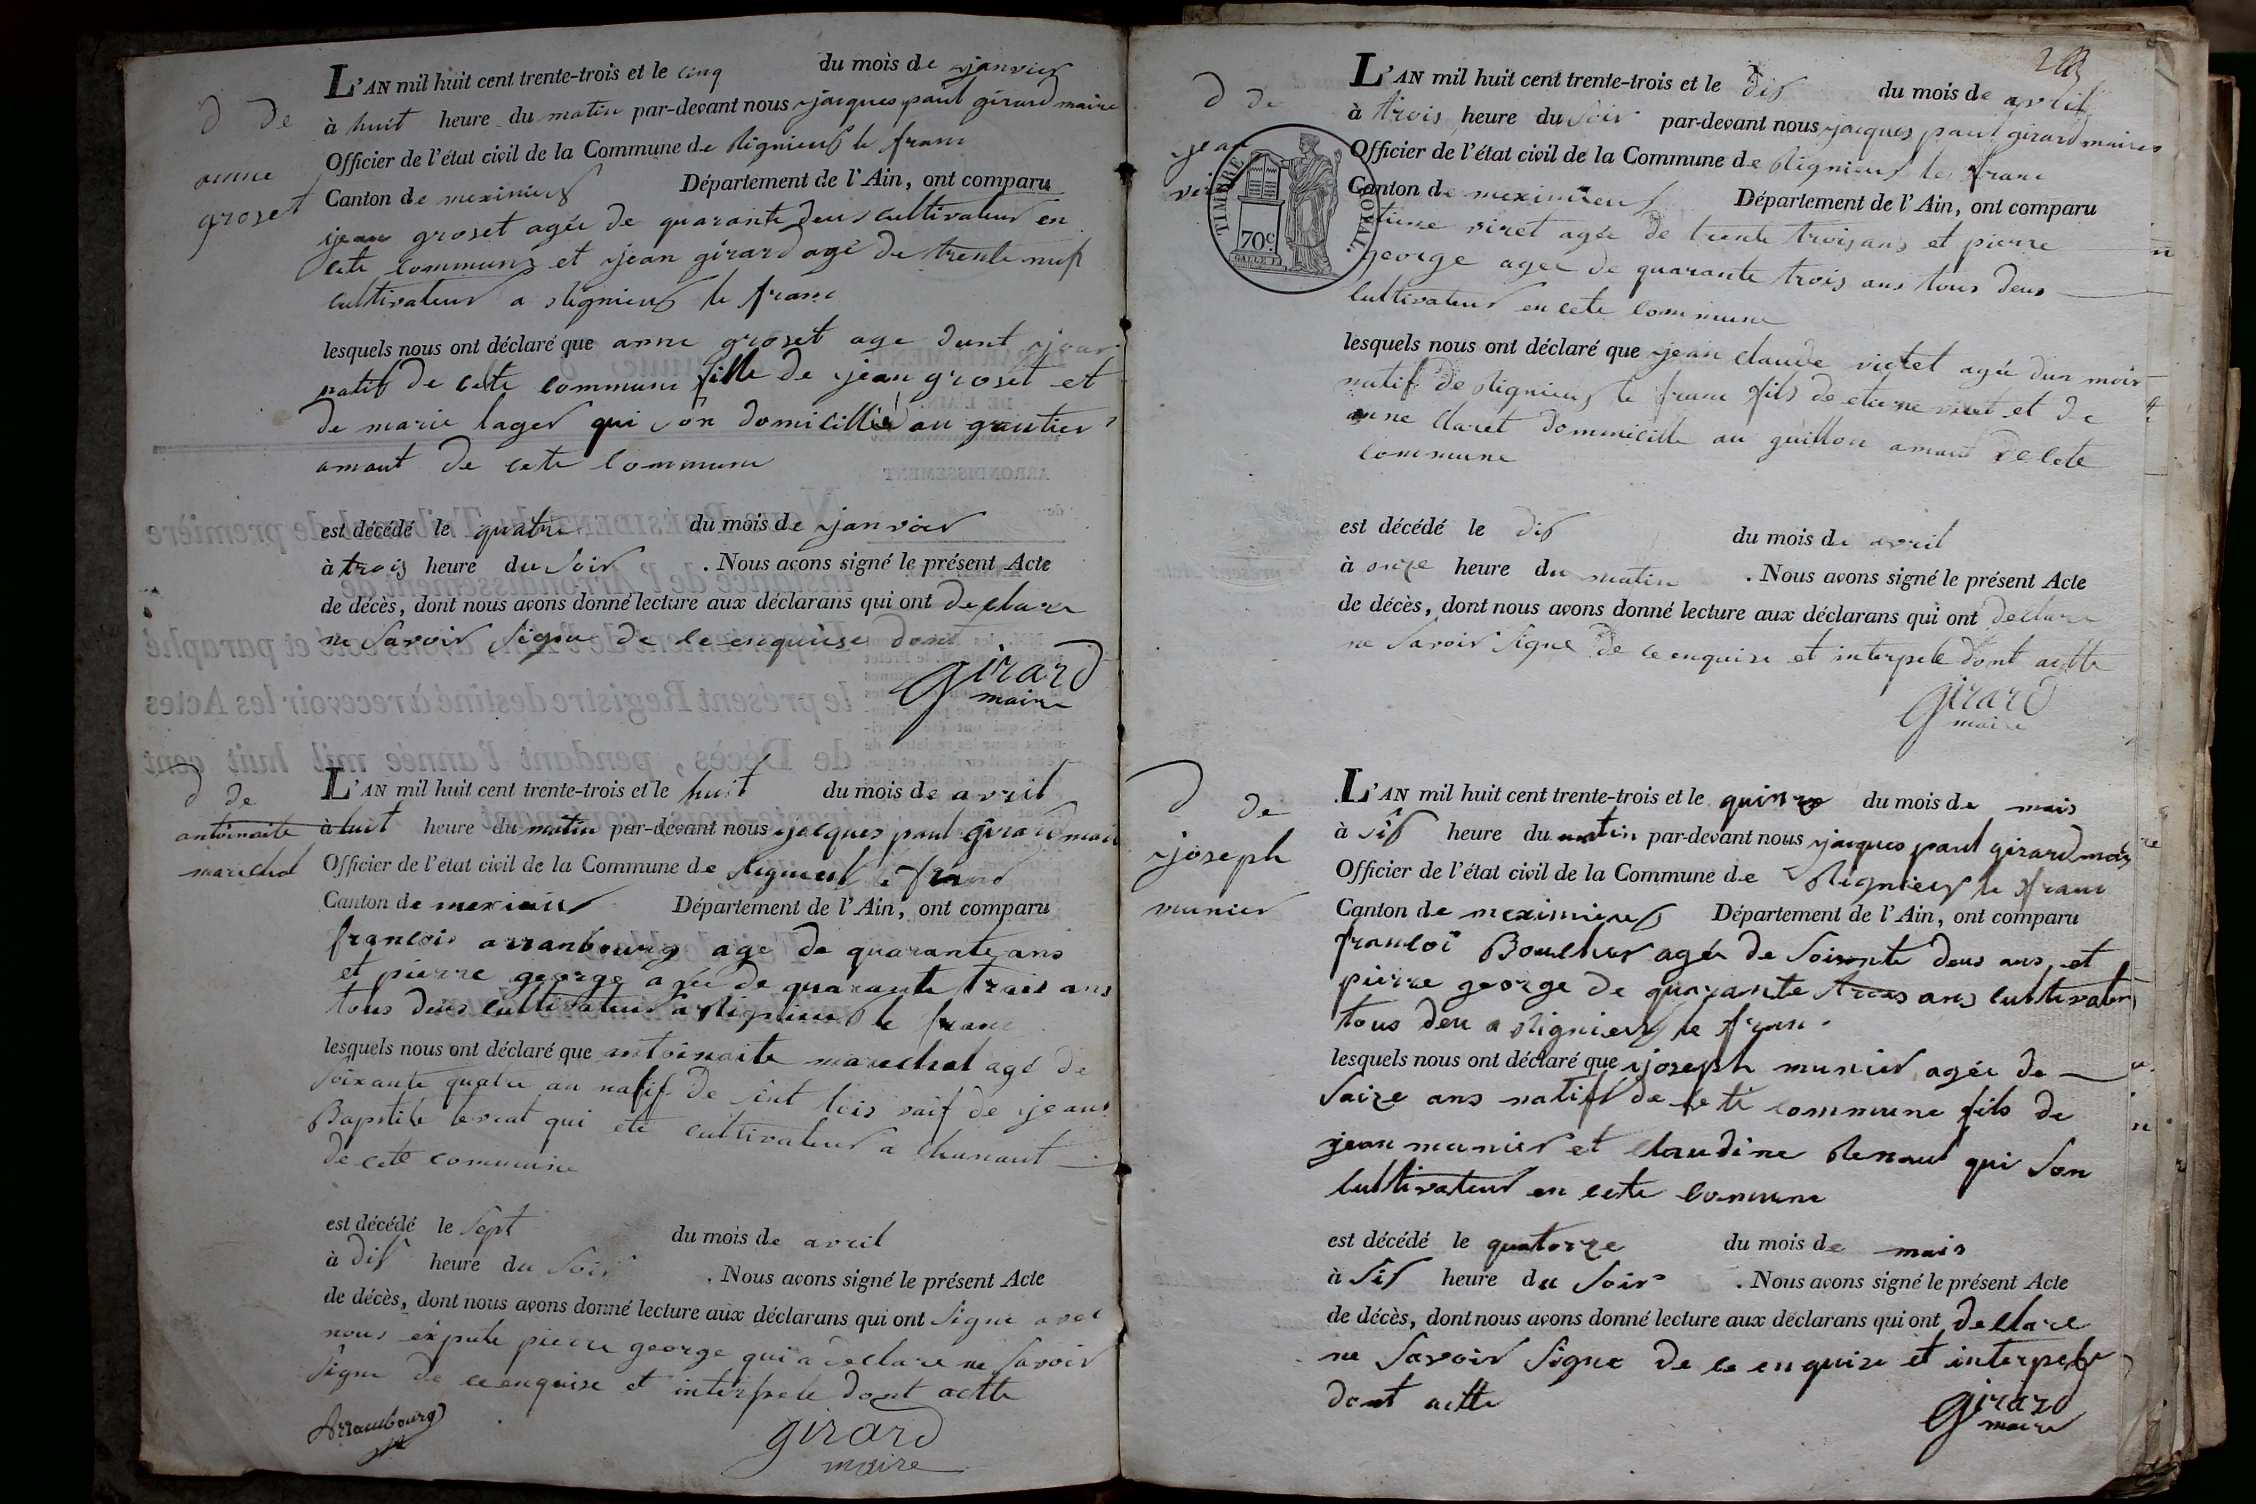 d de
anne
groset
L'AN mil huit cent trente-trois et le cinq du mois de janvier
à huit heure du matin par-devant nous jacques paul girard maire
Officier de l'état civil de la Commune de Rignieux le franc
Canton de meximieux Département de l'Ain, ont comparu
jean groset agée de quarante deux cultivateur en
cete commune et jean girard agé de trente nuf
cultivateur a rignieux le franc
lesquels nous ont déclaré que anne groset age dunt jour
natif de cette commune fille de jean groset et
de marie lager qui son domicillié au grautier
amaut de cete commune
est décédé le quatre du mois de janvier
à trois heure du soir . Nous avons signé le présent Acte
de décès, dont nous avons donné lecture aux déclarans qui ont declare
ne savoir signe de ce enquise dont
girard
maire
d de
antoinaite
marechal
L'AN mil huit cent trente-trois et le huit du mois de avril
à huit heure du matin par-devant nous jacques paul girard maire
Officier de l'état civil de la Commune de Rignieux le franc
Canton de meximieux Département de l'Ain, ont comparu
francois arranbourg age de quarante ans
et pierre george agée de quarante trois ans
tous deus cultivateur a Rignieux le franc
lesquels nous ont déclaré que antoinaite marechal agé de
soixante quatre an natif de sint lois vaif de jean
Baptiste qui ete cultivateur a Chanaut
de cete commune
est décédé le sept du mois de avril
à dis heure du soir . Nous avons signé le présent Acte
de décès, dont nous avons donné lecture aux déclarans qui ont signe avec
nous expete pierre george qui a declare ne savoir
signe de ce enquise et interpele dont actte
Arrambourg
girard
maire
d de
jean
TIMBRE ROYAL
70c.
L'AN mil huit cent trente-trois et le dis du mois de avril
à trois heure du soir par-devant nous jacques paul girard maire
Officier de l'état civil de la Commune de Rignieux le franc
Canton de meximieux Département de l'Ain, ont comparu
etiene viret agée de trente trois ans et pierre
george agee de quarante trois ans tous deus
cultivateur en cete commune
lesquels nous ont déclaré que jean claude viret agée dun mois
natif de Rignieux le franc fils de etiene viret et de
anne claret dommicille au guillon amaut de cete
commune
est décédé le dis du mois de avril
à onze heure du matin . Nous avons signé le présent Acte
de décès, dont nous avons donné lecture aux déclarans qui ont declare
ne savoir signe de ce enquise et interpele dont actte
girard
maire
d de
joseph
munier
L'AN mil huit cent trente-trois et le quinze du mois de mais
à sis heure du matin par-devant nous jacques paul girard maire
Officier de l'état civil de la Commune de Rignieux le franc
Canton de meximieux Département de l'Ain, ont comparu
francoi Boucher agée de soisente deus ans et
pierre george de quarante trois ans cultivateur
tous deu a Rignieux le franc
lesquels nous ont déclaré que joseph munier agée de
saize ans natif de cete commune fils de
jean munier et claudine Renaud qui son
cultivateur en cete commune
est décédé le quatorze du mois de mais
à sis heure du soir . Nous avons signé le présent Acte
de décès, dont nous avons donné lecture aux déclarans qui ont declare
ne savoir signe de ce enquise et interpele
dont actte
girard
maire